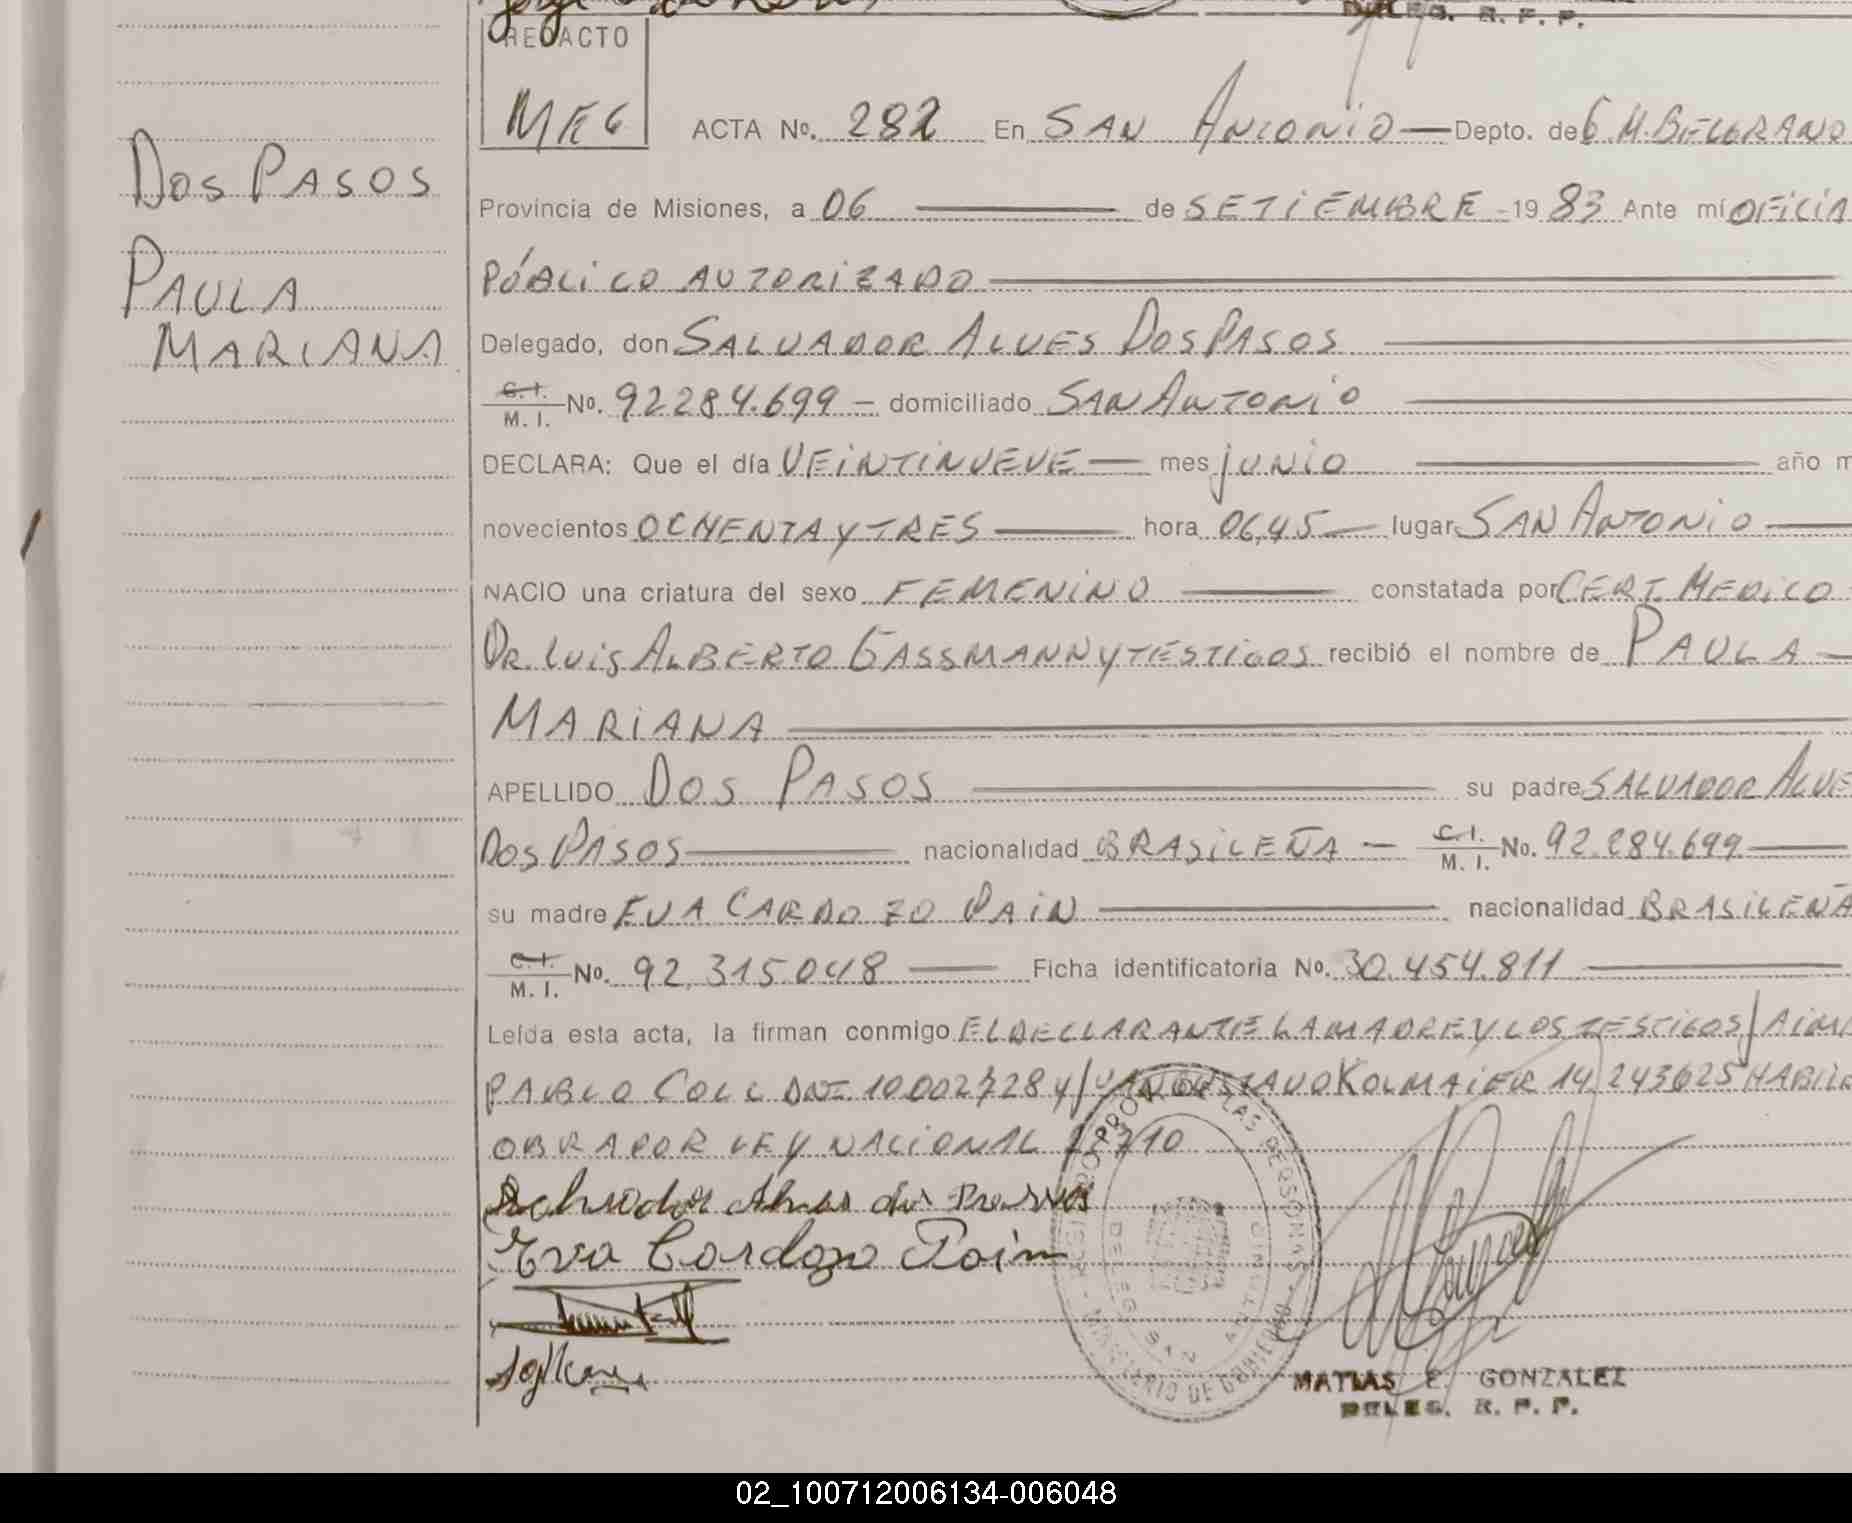 DELEG. R. P. P.
REDACTO
MEG
ACTA No. 282 En SAN ANTONIO — Depto. de G. M. BELGRANO
Provincia de Misiones, a 06 — de SETIEMBRE - 19 83 Ante mí OFICIA
PÚBLICO AUTORIZADO —
Delegado, don SALVADOR ALVES DOS PASOS —
C. I. / M. I. No. 92284.699 — domiciliado SAN ANTONIO —
DECLARA: Que el día VEINTINUEVE — mes junio — año m
novecientos OCHENTA Y TRES — hora 06,45 — lugar SAN ANTONIO —
NACIO una criatura del sexo FEMENINO — constatada por CERT. MEDICO
DR. LUIS ALBERTO GASSMANN Y TESTIGOS recibió el nombre de PAULA —
MARIANA —
APELLIDO DOS PASOS — su padre SALVADOR ALVE
DOS PASOS — nacionalidad BRASILEÑA — C. I. / M. I. No. 92.284.699 —
su madre EVA CARDOZO PAIN — nacionalidad BRASILEÑA
C. I. / M. I. No. 92.315.048 — Ficha identificatoria No. 30.454.811 —
Leída esta acta, la firman conmigo EL DECLARANTE LA MADRE Y LOS TESTIGOS JAIM
PABLO COLL DNI 10002728 y JUAN GUSTAVO KOLMAIER 14.243625 HABIE
OBRADOR LEY NACIONAL
Eva Cordozo Poim
MATIAS E. GONZALEZ
DELEG. R. P. P.
DOS PASOS
PAULA
MARIANA
REGISTRO PROV. DE LAS PERSONAS
MINISTERIO DE GOBIERNO
DELEG. SAN ANTONIO
02_100712006134-006048